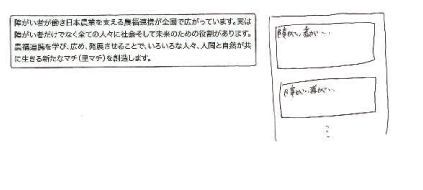 障がい者が働き日本農業を支える農福連携が全国で広がっています。実は
障がい者だけでなく全ての人々に社会そして未来のための役割があります。
農福連携を学び、広め、発展させることで、いろいろな人々、人間と自然が共
に生きる新たなマチ（里マチ）を創造します。
障がい者が…
障がい者が…